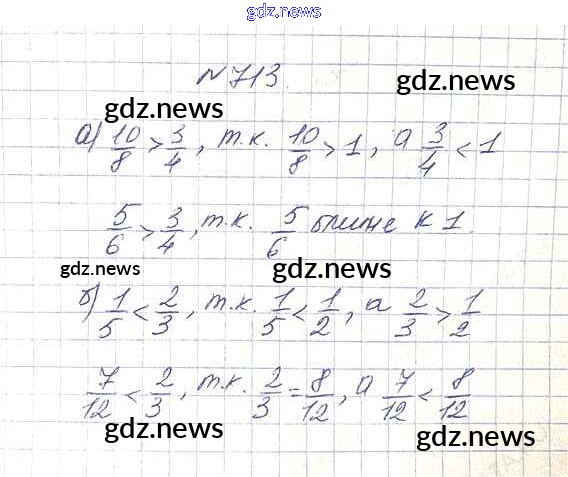 gdz.news
№713.
gdz.news
gdz.news
а) 10/8 > 3/4, т.к. 10/8 > 1, а 3/4 < 1
5/6 > 3/4, т.к. 5/6 ближе к 1.
gdz.news
gdz.news
б) 1/5 < 2/3, т.к. 1/5 < 1/2, а 2/3 > 1/2
7/12 < 2/3, т.к. 2/3 = 8/12, а 7/12 < 8/12
gdz.news
gdz.news